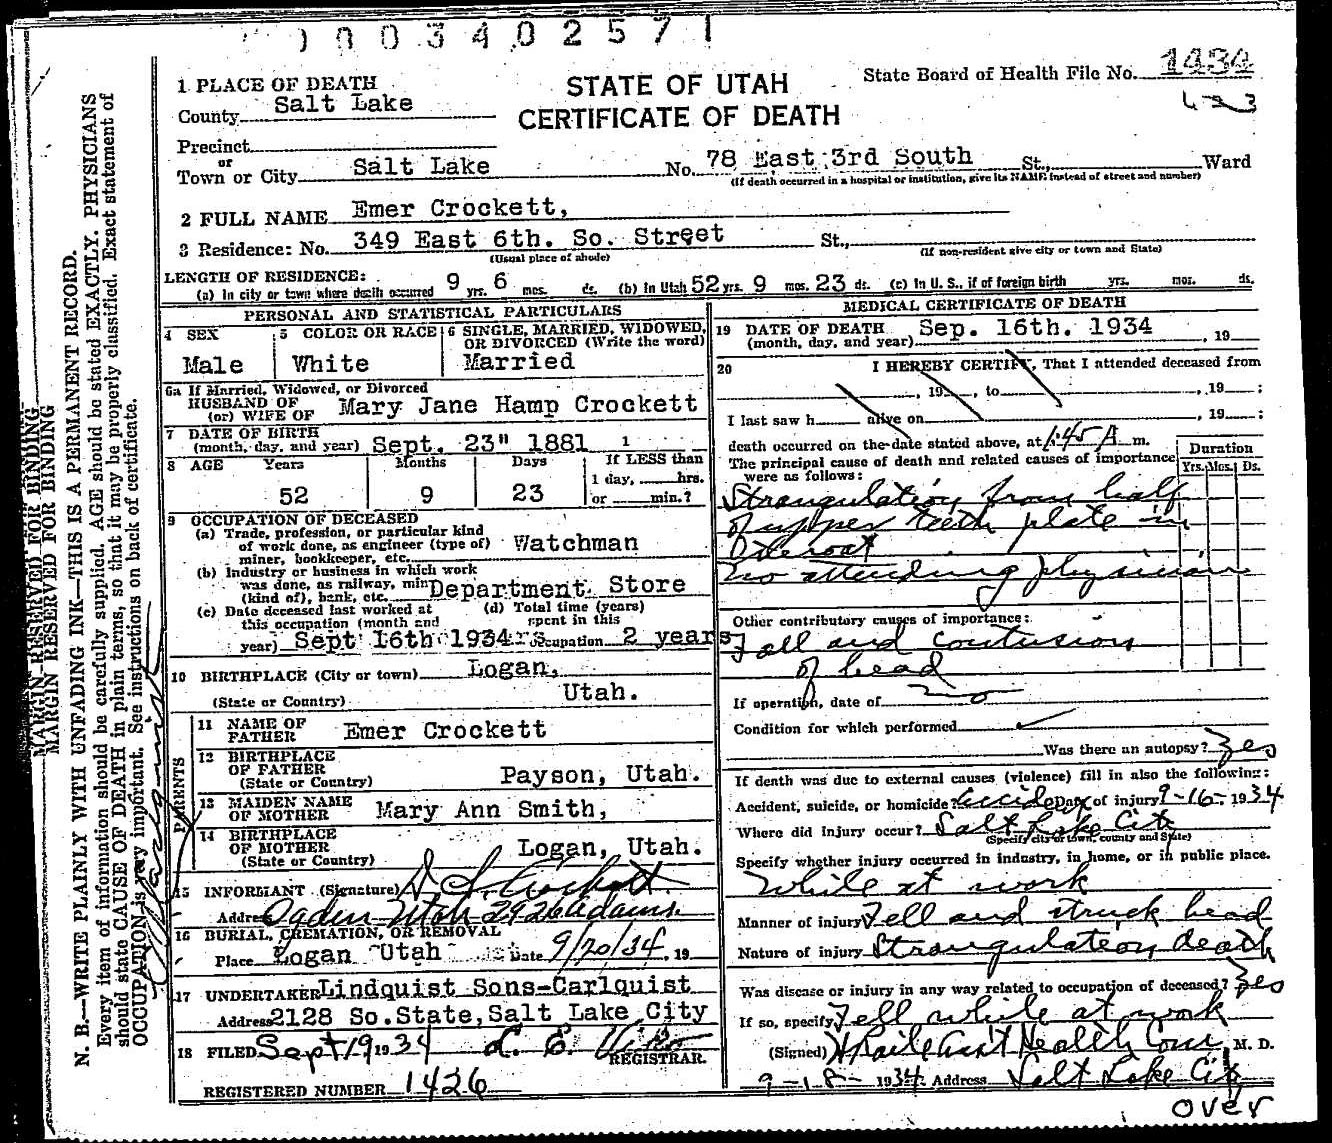 000340257
1 PLACE OF DEATH
STATE OF UTAH
CERTIFICATE OF DEATH
State Board of Health File No. 1434
County Salt Lake
Precinct
or
Town or City Salt Lake No. 78 East 3rd South St., Ward
(If death occurred in a hospital or institution, give its NAME instead of street and number)
2 FULL NAME Emer Crockett,
3 Residence: No. 349 East 6th. So. Street St.,
(Usual place of abode) (If non-resident give city or town and State)
LENGTH OF RESIDENCE:
(a) In city or town where death occurred 9 yrs. 6 mos. ds. (b) In Utah 52 yrs. 9 mos. 23 ds. (c) In U. S., if of foreign birth yrs. mos. ds.
PERSONAL AND STATISTICAL PARTICULARS
4 SEX
Male
5 COLOR OR RACE
White
6 SINGLE, MARRIED, WIDOWED,
OR DIVORCED (Write the word)
Married
6a If Married, Widowed, or Divorced
HUSBAND OF
(or) WIFE OF Mary Jane Hamp Crockett
7 DATE OF BIRTH
(month, day, and year) Sept. 23" 1881
8 AGE Years Months Days If LESS than
1 day, hrs.
52 9 23 or min.?
9 OCCUPATION OF DECEASED
(a) Trade, profession, or particular kind
of work done, as engineer (type of) Watchman
miner, bookkeeper, etc.
(b) Industry or business in which work
was done, as railway, min Department Store
(kind of), bank, etc.
(c) Date deceased last worked at (d) Total time (years)
this occupation (month and spent in this
year) Sept 16th 1934 occupation 2 years
10 BIRTHPLACE (City or town) Logan,
(State or Country) Utah.
PARENTS
11 NAME OF
FATHER Emer Crockett
12 BIRTHPLACE
OF FATHER
(State or Country) Payson, Utah.
13 MAIDEN NAME
OF MOTHER Mary Ann Smith,
14 BIRTHPLACE
OF MOTHER
(State or Country) Logan, Utah.
15 INFORMANT (Signature) D. S. Crockett
Address Ogden Utah 2926 Adams.
16 BURIAL, CREMATION, OR REMOVAL
Place Logan Utah Date 9/20/34, 19
17 UNDERTAKER Lindquist Sons-Carlquist
Address 2128 So. State, Salt Lake City
18 FILED Sept 19 1934 L. E.
REGISTRAR.
REGISTERED NUMBER 1426
MEDICAL CERTIFICATE OF DEATH
19 DATE OF DEATH Sep. 16th. 1934
(month, day, and year) , 19
20 I HEREBY CERTIFY, That I attended deceased from
, 19 , to , 19 ;
I last saw h alive on , 19 ;
death occurred on the date stated above, at 1:45 A m.
The principal cause of death and related causes of importance
were as follows:
Duration
Yrs. Mos. Ds.
Strangulation from half
of upper teeth plate in
throat
no attending physician
Other contributory causes of importance:
Fall and contusion
of head
If operation, date of no
Condition for which performed
Was there an autopsy? Yes
If death was due to external causes (violence) fill in also the following:
Accident, suicide, or homicide? Accident Date of injury 9-16-1934
Where did injury occur? Salt Lake City
(Specify city or town, county and State)
Specify whether injury occurred in industry, in home, or in public place.
While at work
Manner of injury Fell and struck head
Nature of injury Strangulation death
Was disease or injury in any way related to occupation of deceased? Yes
If so, specify Fell while at work
(Signed) Health Com M. D.
9-18-1934 Address Salt Lake City
over
MARGIN RESERVED FOR BINDING
MARGIN RESERVED FOR BINDING
N. B.—WRITE PLAINLY WITH UNFADING INK—THIS IS A PERMANENT RECORD.
Every item of information should be carefully supplied. AGE should be stated EXACTLY. PHYSICIANS
should state CAUSE OF DEATH in plain terms, so that it may be properly classified. Exact statement of
OCCUPATION is very important. See instructions on back of certificate.